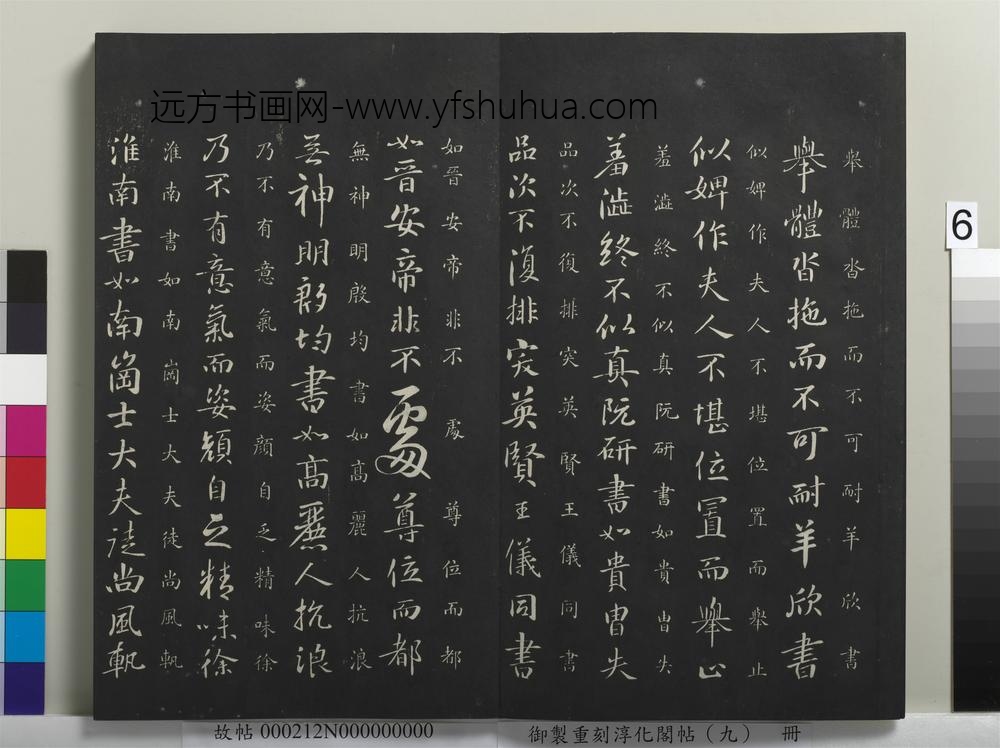 远方书画网-www.yfshuhua.com
舉體沓拖而不可耐羊欣書
舉體沓拖而不可耐羊欣書
似婢作夫人不堪位置而舉止
似婢作夫人不堪位置而舉止
羞澁終不似真阮研書如貴胄失
羞澁終不似真阮研書如貴胄失
品次不復排突英賢王儀同書
品次不復排突英賢王儀同書
如晉安帝非不處尊位而都
如晉安帝非不處尊位而都
無神明殷均書如高麗人抗浪
無神明殷均書如高麗人抗浪
乃不有意氣而姿顔自乏精味徐
乃不有意氣而姿顔自乏精味徐
淮南書如南崗士大夫徒尚風軌
淮南書如南崗士大夫徒尚風軌
6
故帖 000212N000000000
御製重刻淳化閣帖（九） 冊